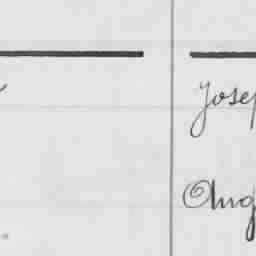 Josep
Aug